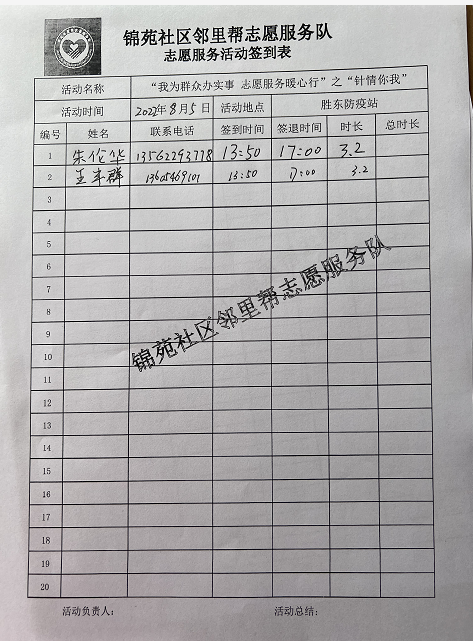 锦苑社区邻里帮志愿服务队
志愿服务活动签到表
活动名称 “我为群众办实事 志愿服务暖心行”之“针情你我”
活动时间 2022年8月5日 活动地点 胜东防疫站
编号 姓名 联系电话 签到时间 签退时间 时长 总时长
1 朱伦华 13562293778 13:50 17:00 3.2
2 王丰群 13605469101 13:50 17:00 3.2
3
4
5
6
7
8
9
10
11
12
13
14
15
16
17
18
19
20
锦苑社区邻里帮志愿服务队
活动负责人： 活动总结：